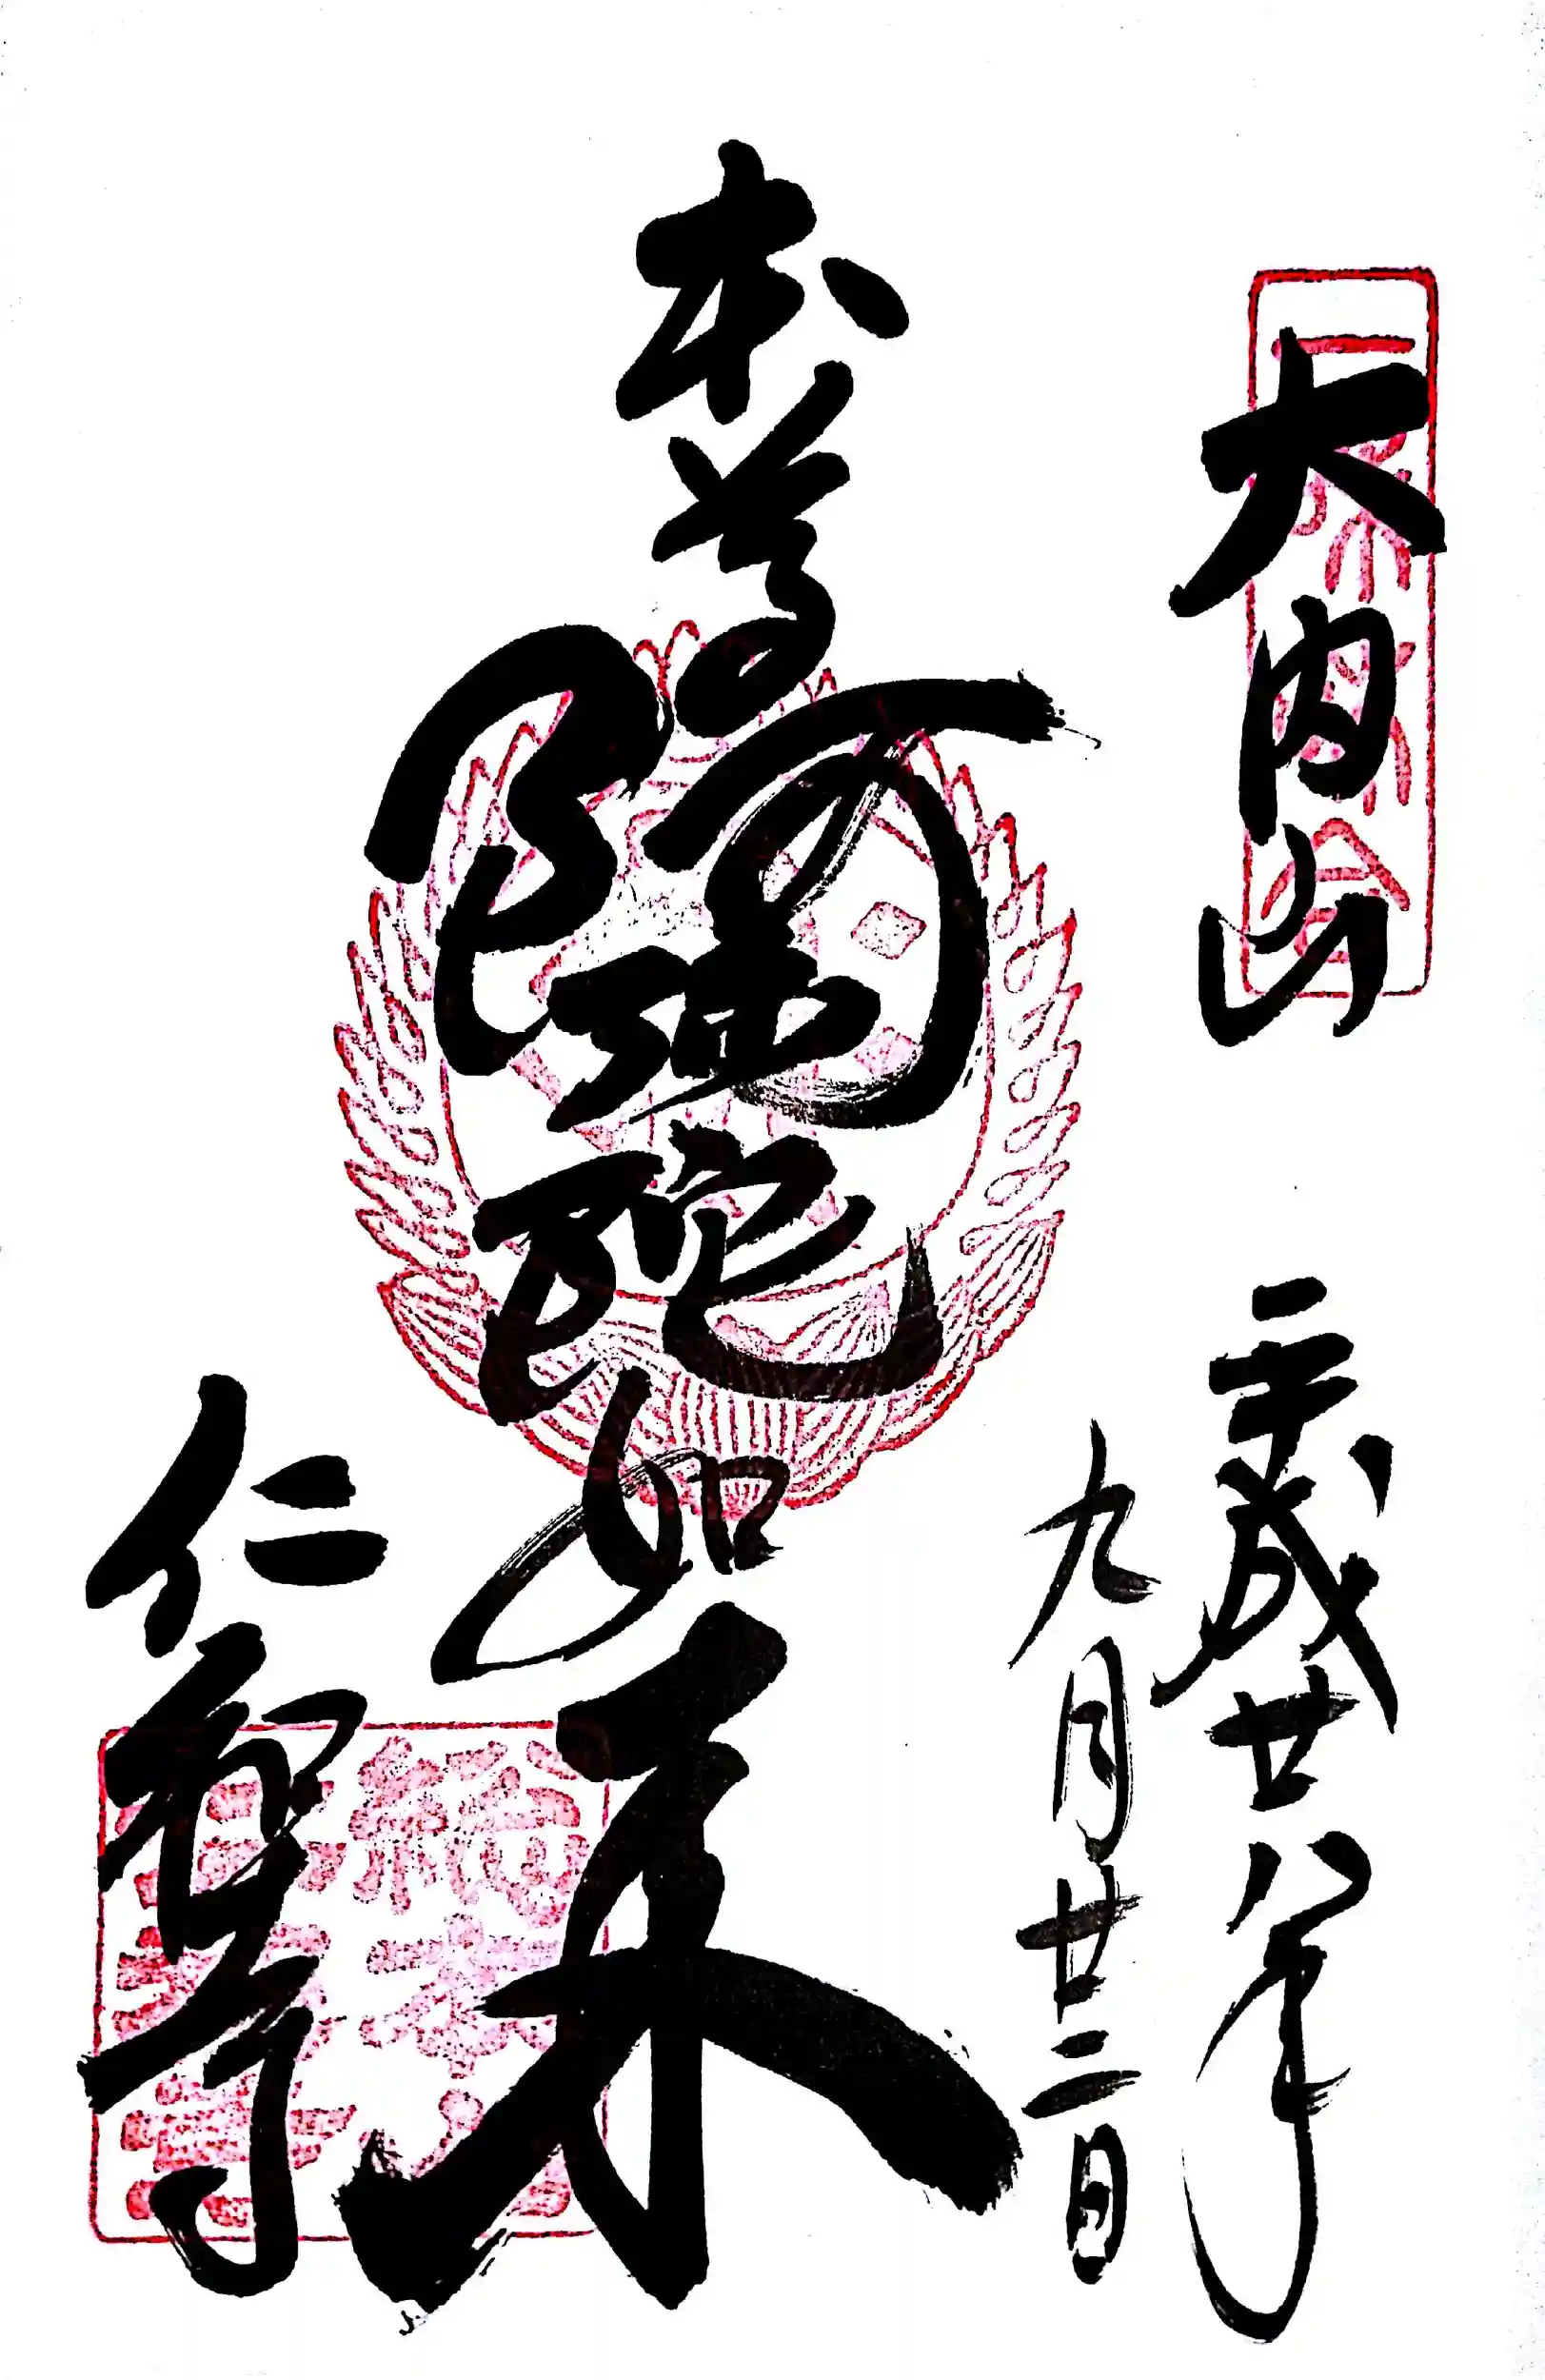 大内山
平成廿八年
九月廿三日
本尊
阿弥陀如来
仁和寺
総本山